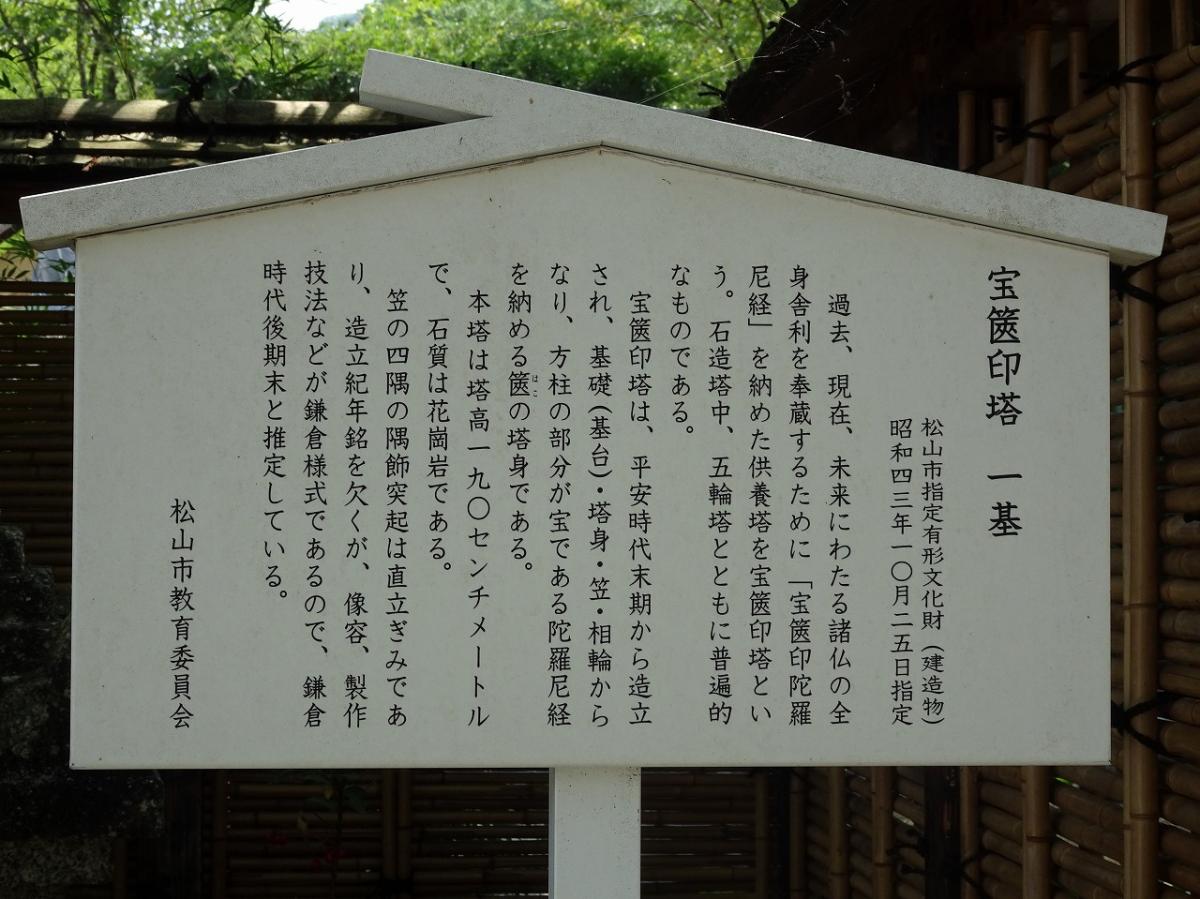 宝篋印塔　一基
松山市指定有形文化財（建造物）
昭和四三年一〇月二五日指定
過去、現在、未来にわたる諸仏の全
身舎利を奉蔵するために「宝篋印陀羅
尼経」を納めた供養塔を宝篋印塔とい
う。石造塔中、五輪塔とともに普遍的
なものである。
宝篋印塔は、平安時代末期から造立
され、基礎（基台）・塔身・笠・相輪から
なり、方柱の部分が宝である陀羅尼経
を納める篋の塔身である。
はこ
本塔は塔高一九〇センチメートル
で、石質は花崗岩である。
笠の四隅の隅飾突起は直立ぎみであ
り、造立紀年銘を欠くが、像容、製作
技法などが鎌倉様式であるので、鎌倉
時代後期末と推定している。
松山市教育委員会